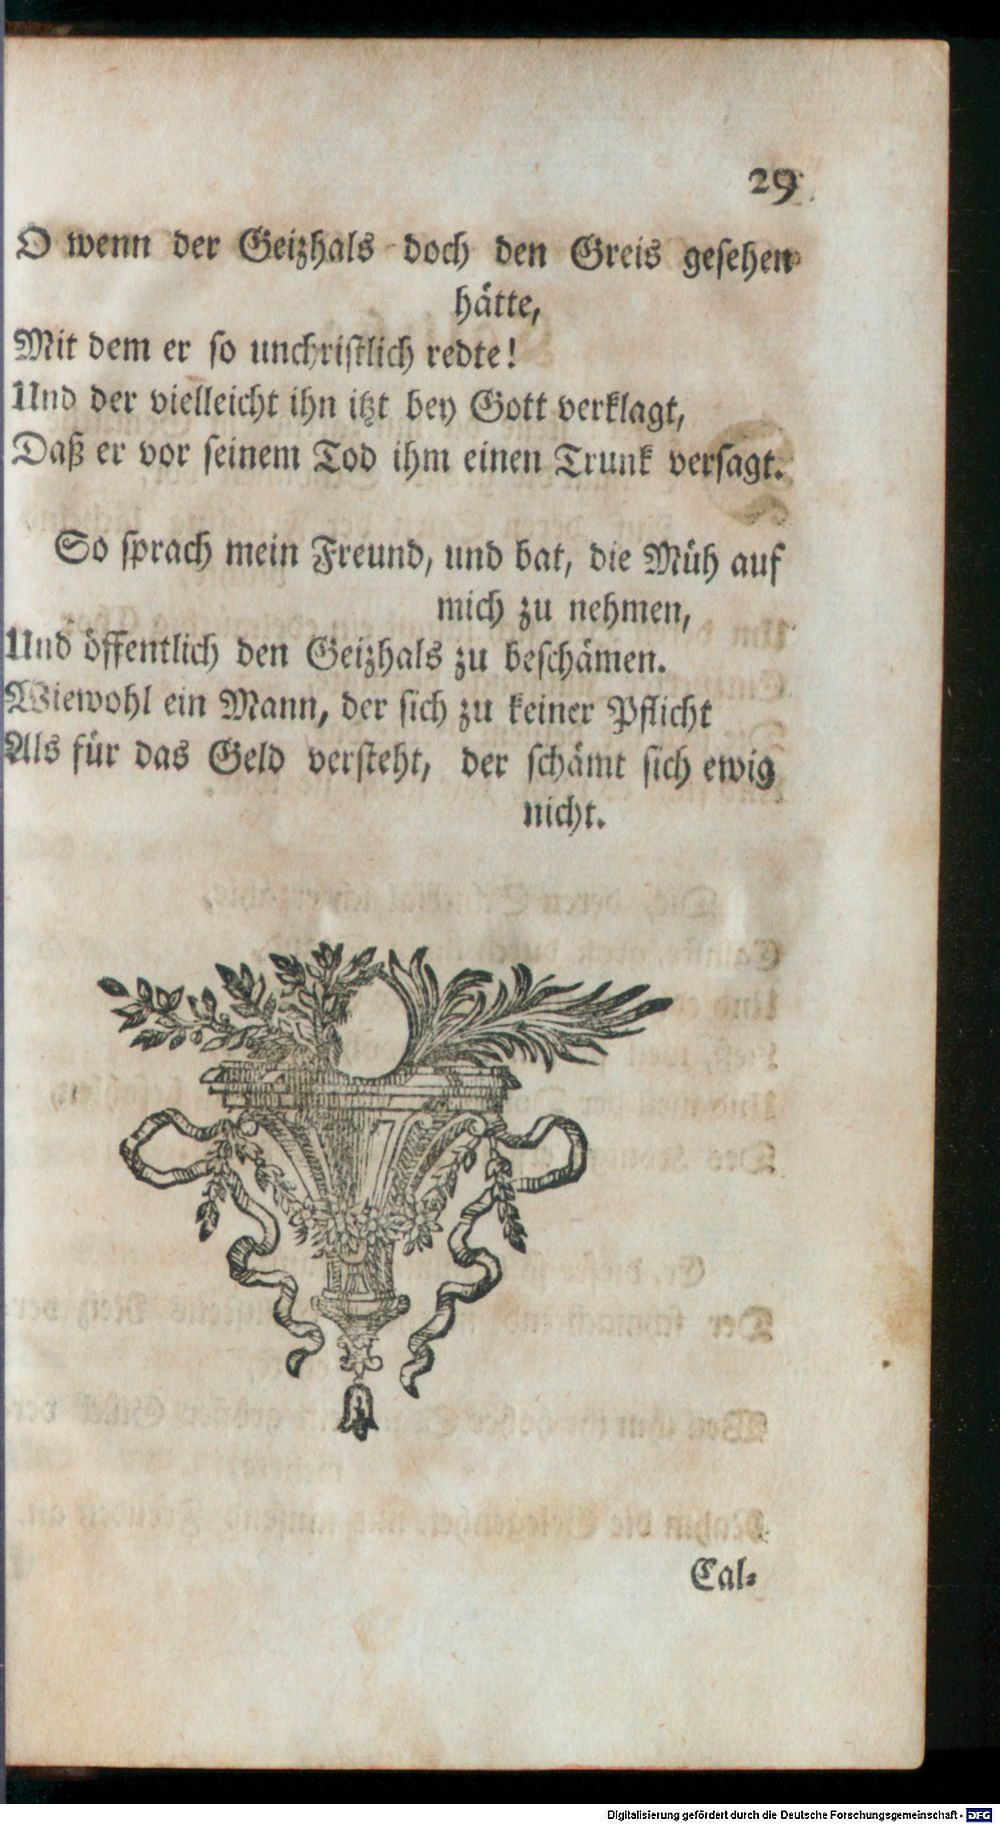 29
O wenn der Geizhals doch den Greis gesehen
hätte,
Mit dem er so unchristlich redte!
Und der vielleicht ihn itzt bey Gott verklagt,
Daß er vor seinem Tod ihm einen Trunk versagt.
So sprach mein Freund, und bat, die Müh auf
mich zu nehmen,
Und öffentlich den Geizhals zu beschämen.
Wiewohl ein Mann, der sich zu keiner Pflicht
Als für das Geld versteht, der schämt sich ewig
nicht.
Cal-
Digitalisierung gefördert durch die Deutsche Forschungsgemeinschaft - DFG